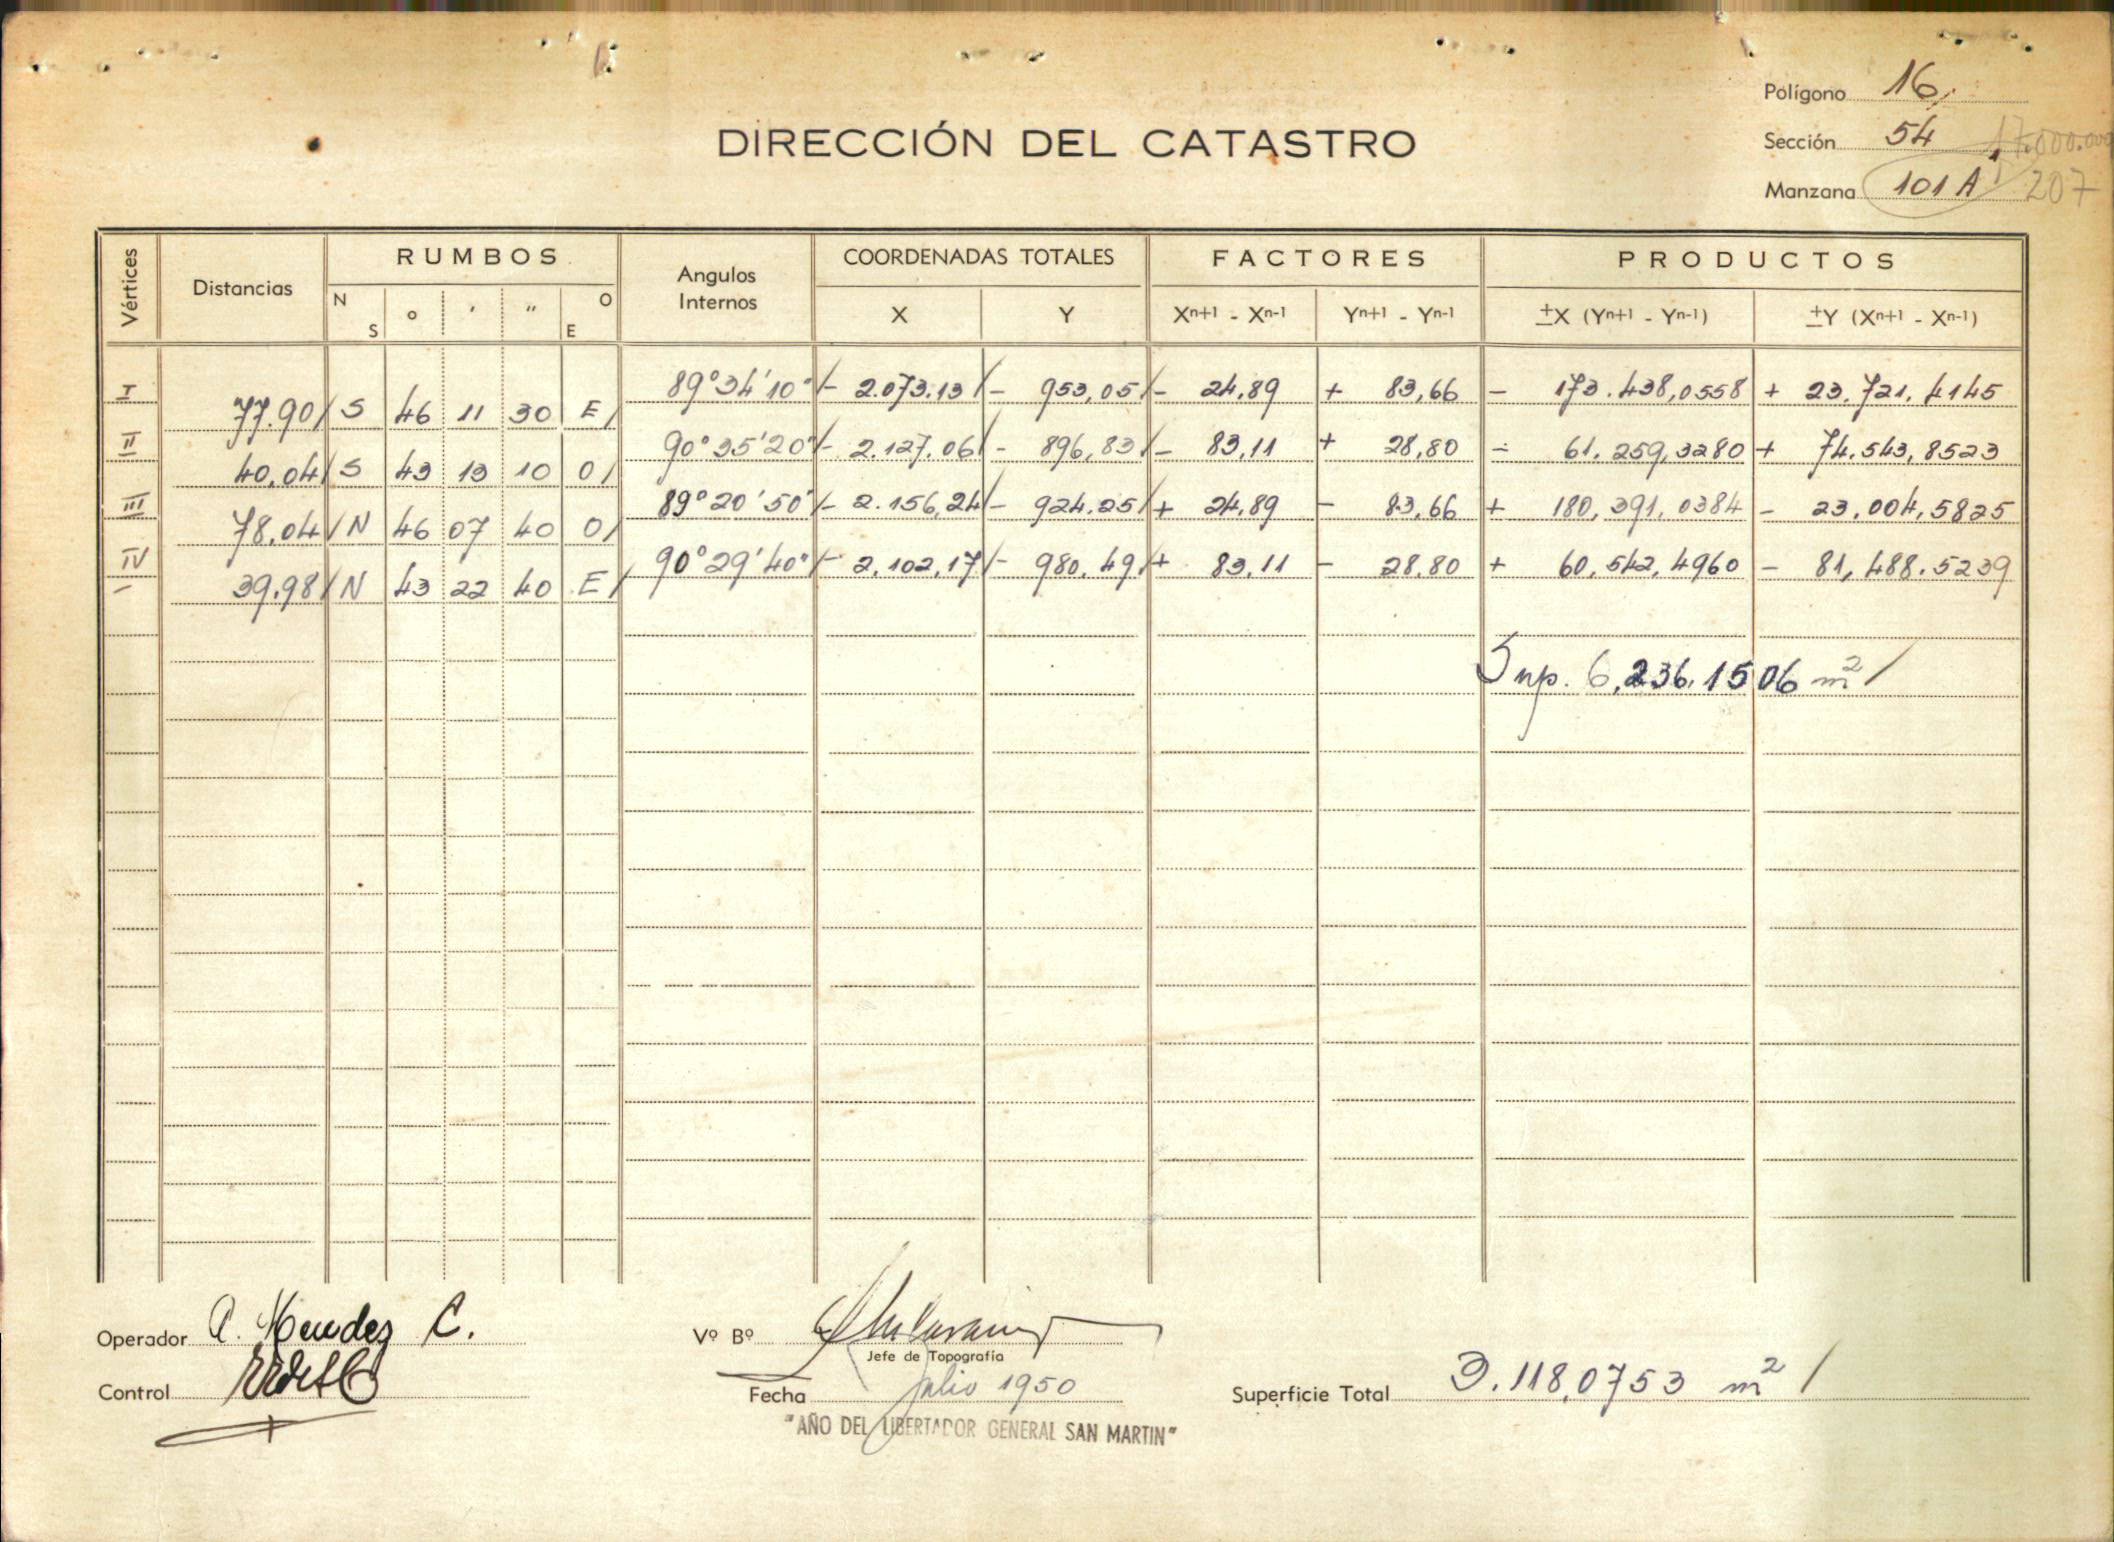 Polígono 16
DIRECCIÓN DEL CATASTRO
Sección 54 17.000.000
Manzana 101 A 207
Vértices Distancias RUMBOS Angulos Internos COORDENADAS TOTALES FACTORES PRODUCTOS
N S o ' " O E X Y Xn+1 - Xn-1 Yn+1 - Yn-1 ±X (Yn+1 - Yn-1) ±Y (Xn+1 - Xn-1)
I 89°34'10" / - 2.073.13 / - 953,05 / - 24.89 + 83,66 - 173.438,0558 + 23.721.4145
77.90 / S 46 11 30 E /
II 90°35'20" / - 2.127.06 / - 896,83 / - 83,11 + 28,80 - 61.259,3280 + 74.543,8523
40,04 / S 43 13 10 O /
III 89°20'50" / - 2.156,24 / - 924.25 / + 24,89 - 83,66 + 180,391,0384 - 23.004,5825
78,04 / N 46 07 40 O /
IV 90°29'40" / - 2.102,17 / - 980,49 / + 83,11 - 28.80 + 60,542,4960 - 81,488.5239
39,98 / N 43 22 40 E /
Sup. 6,236,1506 m² /
Operador A. Mendez C.
Vº Bº
Jefe de Topografía
Control
Fecha Julio 1950
Superficie Total 3.118,0753 m² /
"AÑO DEL LIBERTADOR GENERAL SAN MARTIN"